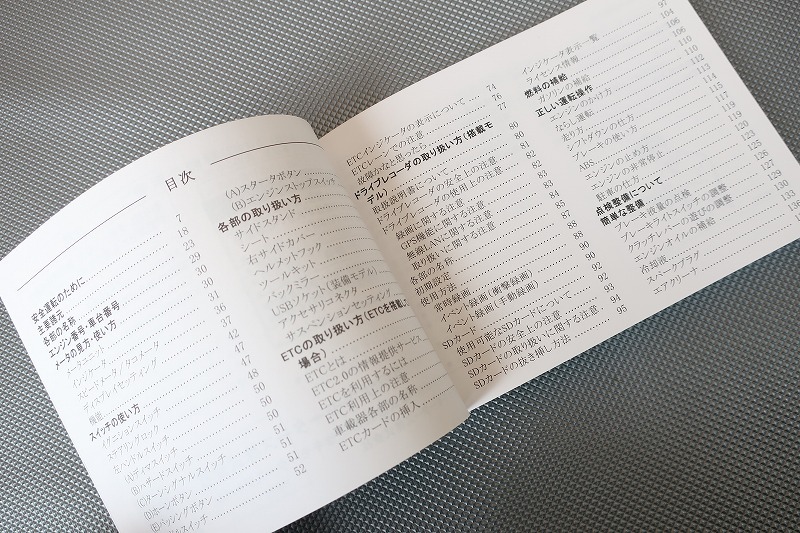 目次
安全運転のために 7
主要諸元 18
各部の名称 23
エンジン番号・車台番号 29
メータの見方・使い方 30
メータユニット 30
インジケータ 31
スピードメータ/タコメータ 36
ディスプレイセッティング 40
機能 42
スイッチの使い方 47
イグニションスイッチ 48
ステアリングロック 50
左ハンドルスイッチ 50
(A)ディマスイッチ 50
(B)ハザードスイッチ 51
(C)ターンシグナルスイッチ 51
(D)ホーンボタン 52
(E)パッシングボタン
(A)スタータボタン
(B)エンジンストップスイッチ
各部の取り扱い方
サイドスタンド
シート
右サイドカバー
ヘルメットフック
ツールキット
バックミラー
USBソケット(装備モデル)
アクセサリコネクタ
サスペンションセッティング
ETCの取り扱い方(ETCを搭載
場合)
ETCとは
ETC2.0の情報提供サービス
ETCを利用するには
ETC利用上の注意
車載器各部の名称
ETCカードの挿入
ETCインジケータの表示について 74
ETCレーンでの注意 76
故障かなと思ったら 77
ドライブレコーダの取り扱い方(搭載モ
デル) 80
取扱説明書について 80
ドライブレコーダの安全上の注意 81
ドライブレコーダの使用上の注意 82
録画に関する注意 82
GPS機能に関する注意 83
無線LANに関する注意 84
取り扱いに関する注意 85
各部の名称 87
初期設定 88
使用方法 90
常時録画 92
イベント録画(衝撃録画) 92
イベント録画(手動録画) 93
SDカード 94
使用可能なSDカードについて 94
SDカードの安全上の注意 94
SDカードの取り扱いに関する注意 95
SDカードの抜き挿し方法
97
インジケータ表示一覧 104
ライセンス情報 106
燃料の補給 106
ガソリンの補給
正しい運転操作
エンジンのかけ方
ならし運転
走り方
シフトダウンの仕方
ブレーキの使い方
ABS
エンジンの止め方
エンジンの非常停止
駐車の仕方
点検整備について
簡単な整備
ブレーキ液量の点検
ブレーキライトスイッチの調整
クラッチレバーの遊びの調整
エンジンオイルの補給
冷却液
スパークプラグ
エアクリーナ